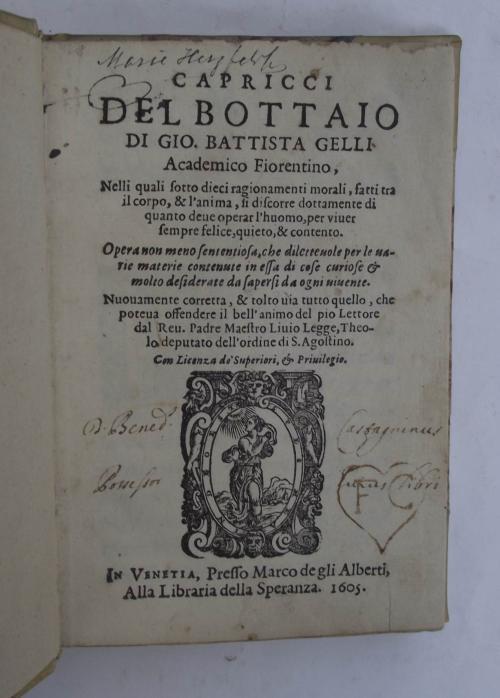 Marie Herzfeld
CAPRICCI
DEL BOTTAIO
DI GIO. BATTISTA GELLI
Academico Fiorentino,
Nelli quali ſotto dieci ragionamenti morali, fatti tra
il corpo, & l'anima, ſi diſcorre dottamente di
quanto deue operar l'huomo, per viuer
ſempre felice, quieto, & contento.
Opera non meno ſententioſa, che diletteuole per le va-
rie materie contenute in eſſa di coſe curioſe &
molto deſiderate da ſaperſi da ogni viuente.
Nuouamente corretta, & tolto via tutto quello, che
poteua offendere il bell'animo del pio Lettore
dal Reu. Padre Maeſtro Liuio Legge, Theo-
lo deputato dell'ordine di S. Agoſtino.
Con Licenza de' Superiori, & Priuilegio.
D. Bened. Castagninus
Possessor huius libri
F
IN VENETIA, Preſſo Marco de gli Alberti,
Alla Libraria della Speranza. 1605.